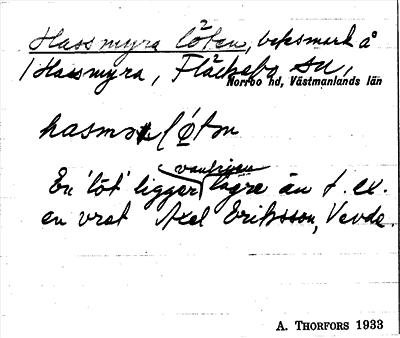 Hassmyra löten, bebsmark å
Hassmyra, Fläckebo sn,
Norrbo hd, Västmanlands län
løtən
En 'löt' ligger vanligen lägre än t. ex.
en vret Axel Eriksson, Vevde.
A. THORFORS 1933